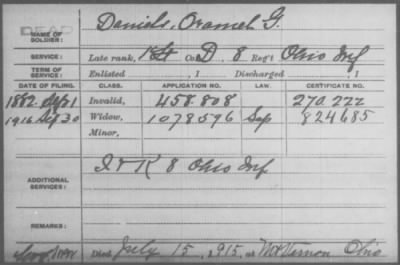 DEAD
Daniels, Oramel G.
NAME OF SOLDIER:
SERVICE: Late rank, 1st Lt Co. D, 8 Reg't Ohio Inf
TERM OF SERVICE: Enlisted , 1 Discharged , 1
DATE OF FILING. CLASS. APPLICATION NO. LAW. CERTIFICATE NO.
1882. Sep 1 Invalid, 458.808 270.222
1915 Sep 30 Widow, 1078596 Sep 824685
Minor,
ADDITIONAL SERVICES: I & K 8 Ohio Inf
REMARKS:
Died July 15, 1915, at Mt Vernon Ohio